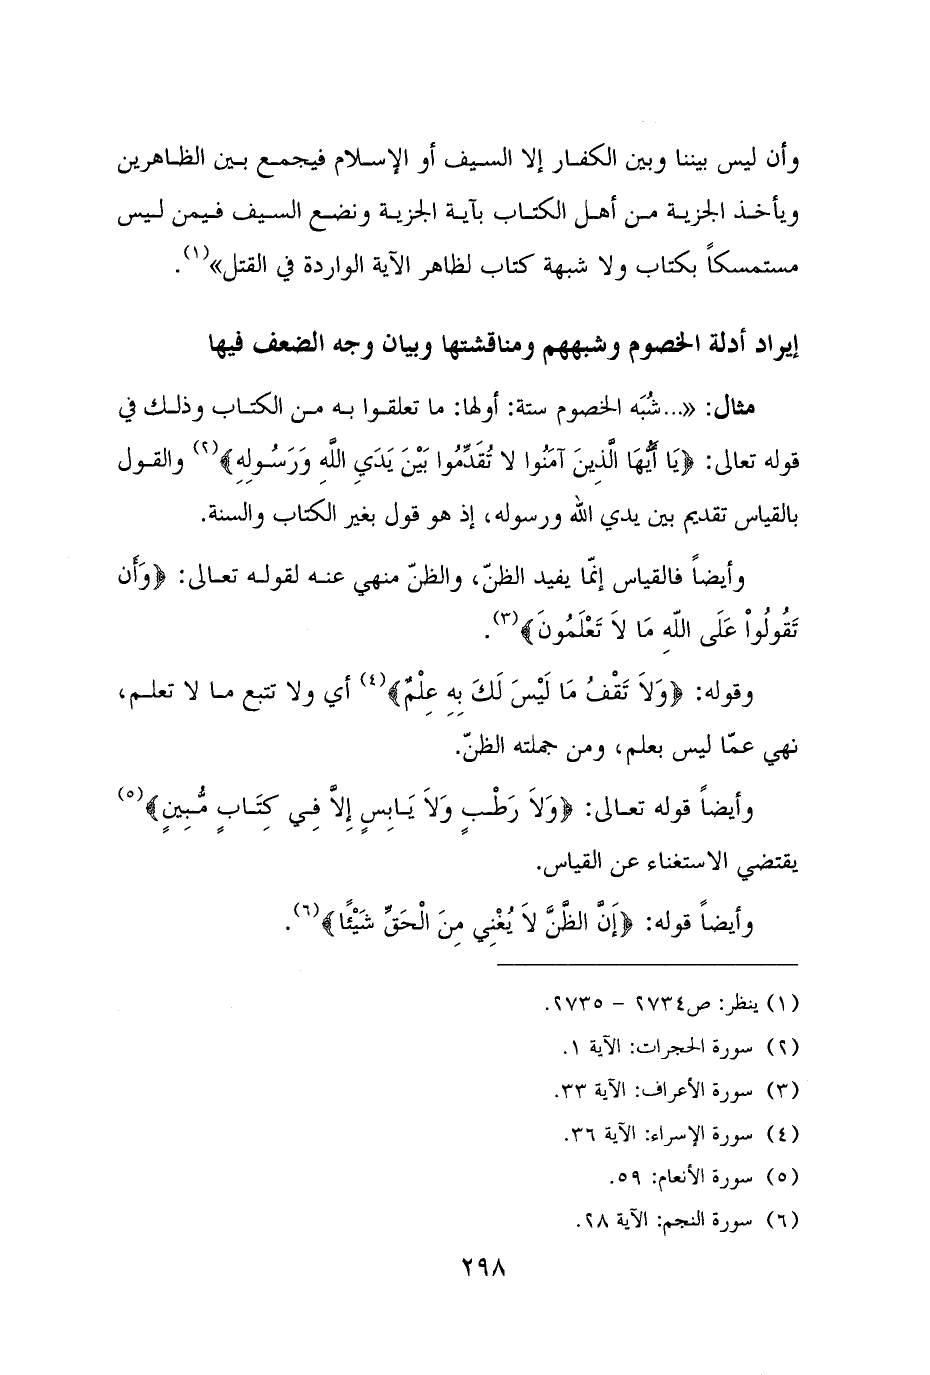 وأن ليس بيننا وبين الكفار إلا السيف أو الإسلام فيجمع بين الظاهرين
ويأخذ الجزية من أهل الكتاب بآية الجزية ونضع السيف فيمن ليس
مستمسكاً بكتاب ولا شبهة كتاب لظاهر الآية الواردة في القتل»(١).
إيراد أدلة الخصوم وشبههم ومناقشتها وبيان وجه الضعف فيها
مثال: «...شُبَه الخصوم ستة: أولها: ما تعلقوا به من الكتاب وذلك في
قوله تعالى: ﴿يَا أَيُّهَا الَّذِينَ آمَنُوا لا تُقَدِّمُوا بَيْنَ يَدَيِ اللَّهِ وَرَسُولِهِ﴾(٢) والقول
بالقياس تقديم بين يدي الله ورسوله، إذ هو قول بغير الكتاب والسنة.
وأيضاً فالقياس إنّما يفيد الظنّ، والظنّ منهي عنه لقوله تعالى: ﴿وَأَن
تَقُولُواْ عَلَى اللّهِ مَا لاَ تَعْلَمُونَ﴾(٣).
وقوله: ﴿وَلاَ تَقْفُ مَا لَيْسَ لَكَ بِهِ عِلْمٌ﴾(٤) أي ولا تتبع ما لا تعلم،
نهي عمّا ليس بعلم، ومن جملته الظنّ.
وأيضاً قوله تعالى: ﴿وَلاَ رَطْبٍ وَلاَ يَابِسٍ إِلاَّ فِي كِتَابٍ مُّبِينٍ﴾(٥)
يقتضي الاستغناء عن القياس.
وأيضاً قوله: ﴿إَنَّ الظَّنَّ لاَ يُغْنِي مِنَ الْحَقِّ شَيْئًا﴾(٦).
(١) ينظر: ص٢٧٣٤ – ٢٧٣٥.
(٢) سورة الحجرات: الآية ١.
(٣) سورة الأعراف: الآية ٣٣.
(٤) سورة الإسراء: الآية ٣٦.
(٥) سورة الأنعام: ٥٩.
(٦) سورة النجم: الآية ٢٨.
٢٩٨